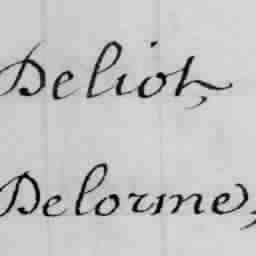 Deliot,
Delorme,